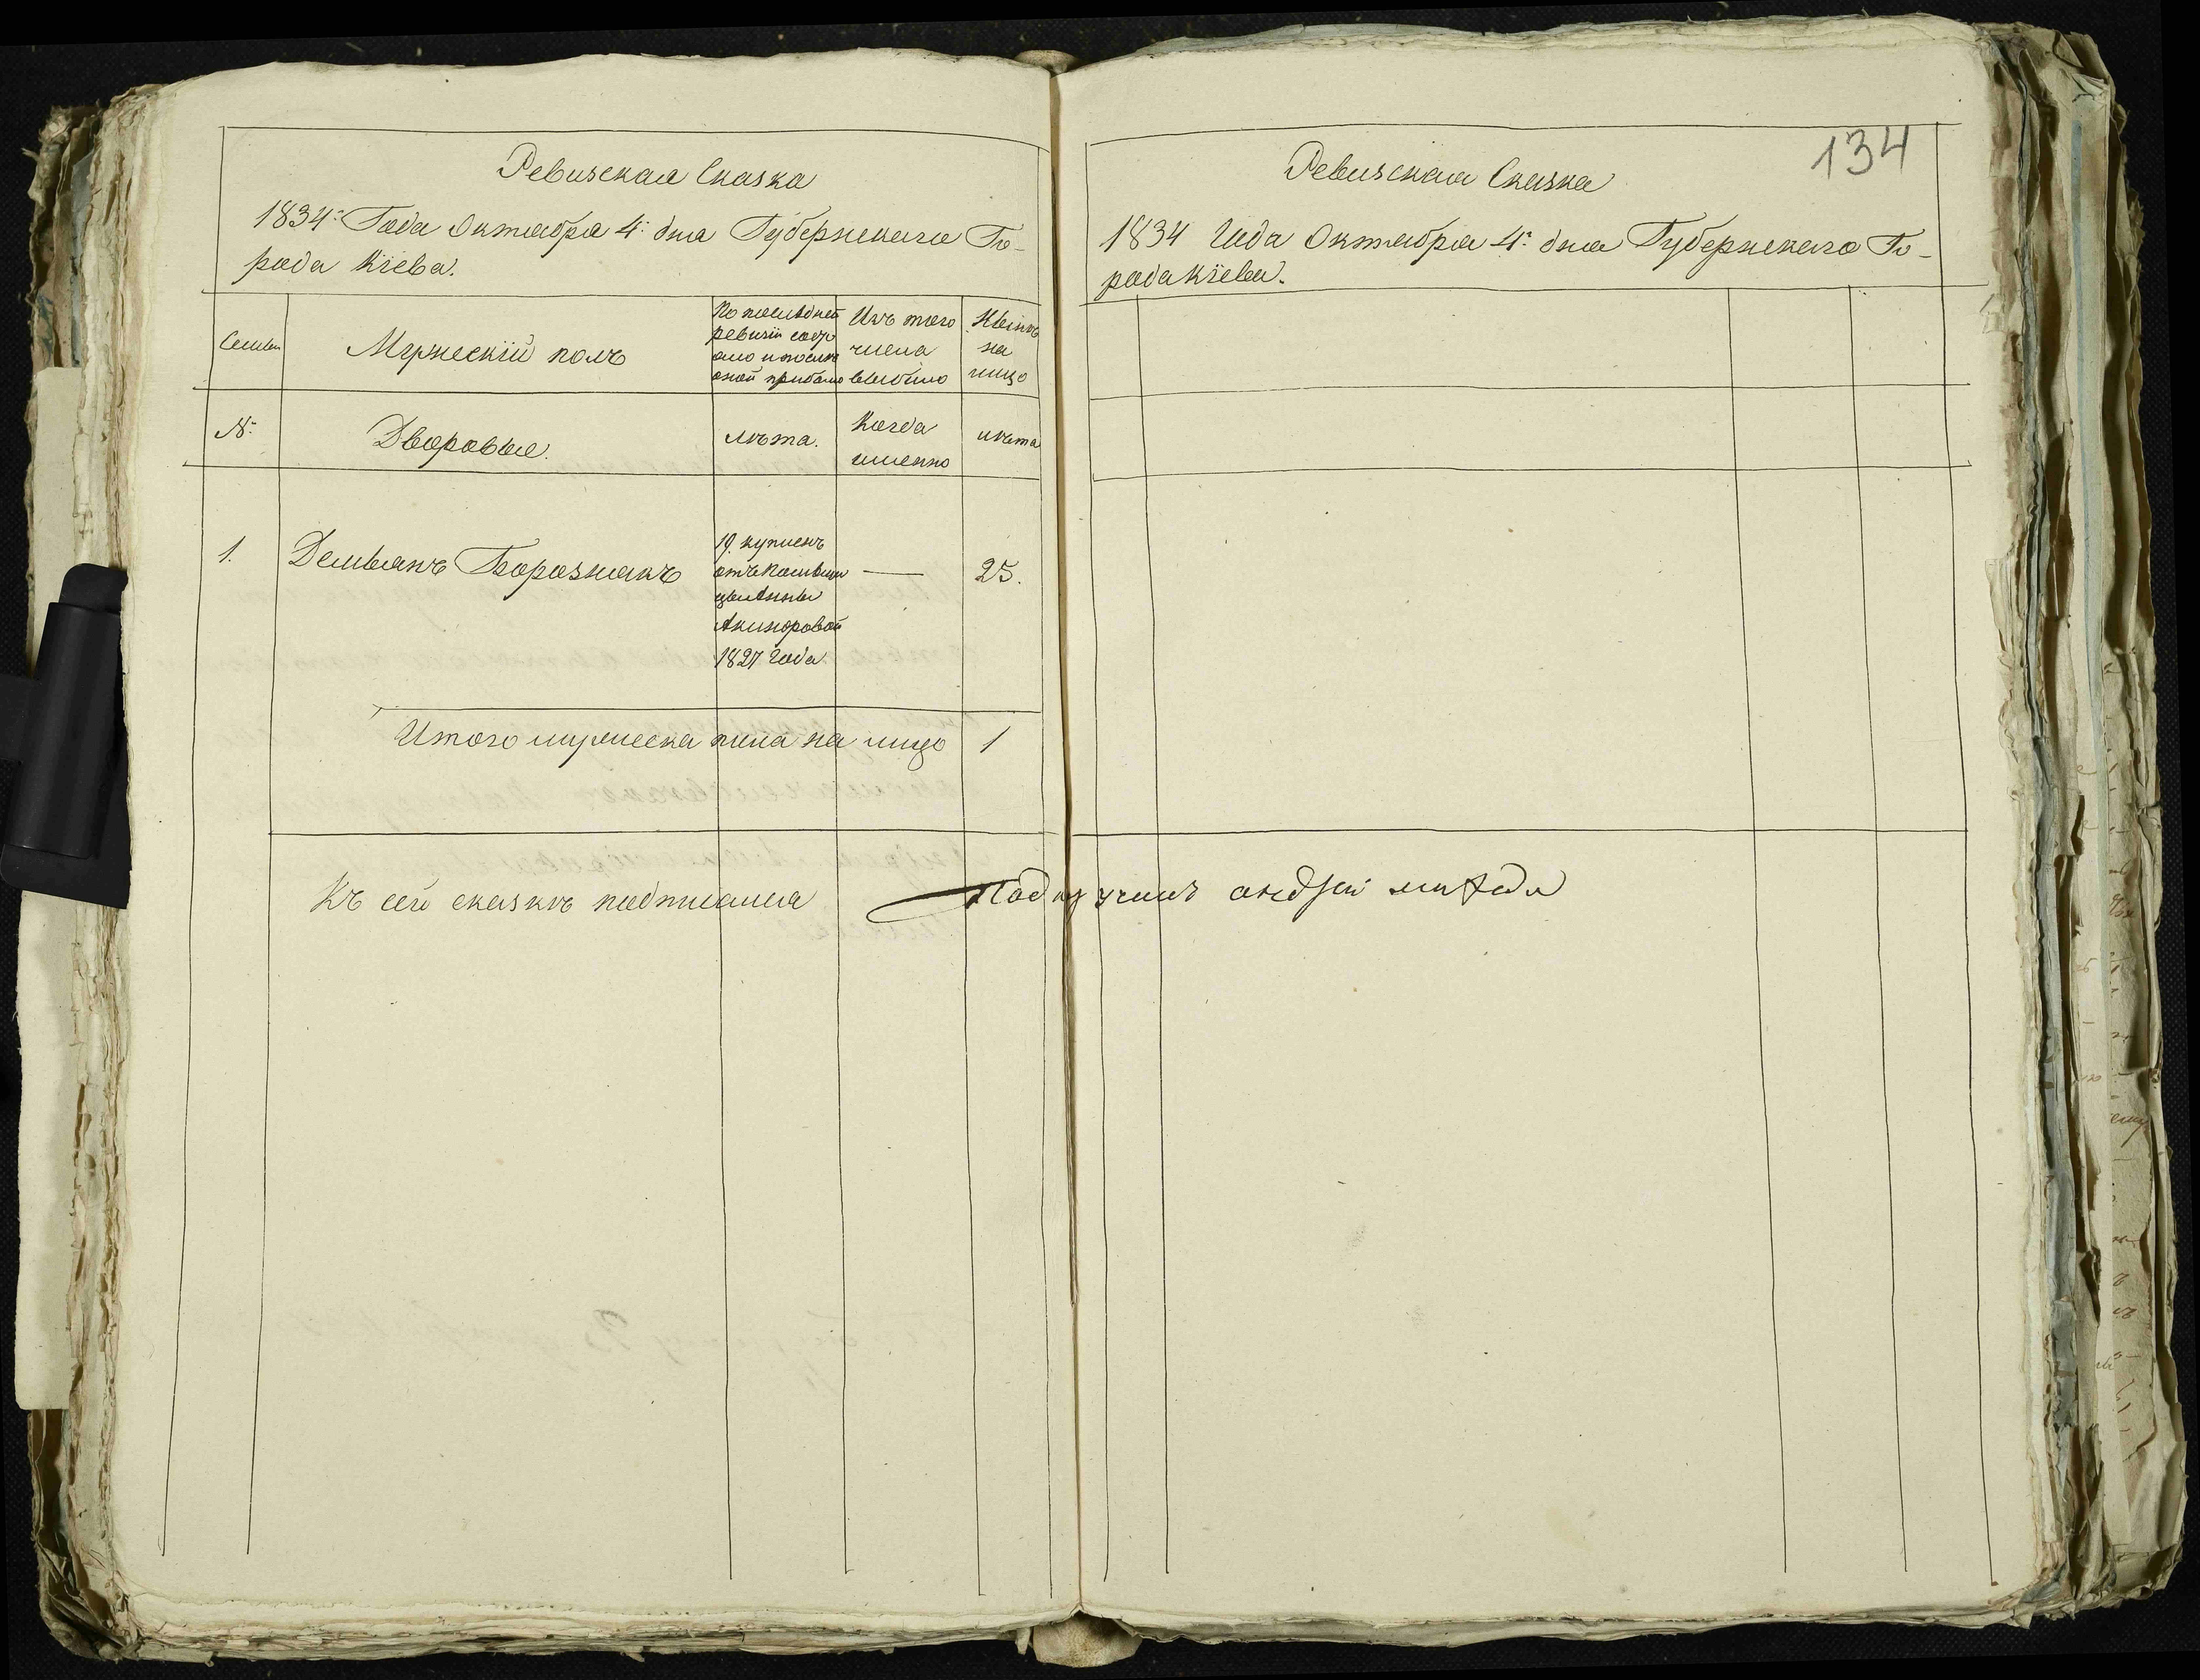 Ревизская Сказка
1834: Года Октября 4: дня Губернскаго Го-
рода Кіева.
Семьи
Мужескій полъ
По последней
ревизіи состо
яло и после
оной прибыло
Изъ того
числа
выбыло
Ныне
на
лицо
№:
Дворовые.
лѣта.
Когда
именно
лѣта
1.
Демьянъ Борознакъ
19. купленъ
отъ
Анны
1827 Года
—
25.
Итого мужеска пола на лицо 1
Къ сей сказкѣ подписался Подпоручикъ
134
Ревизская Сказка
1834 Года Октября 4: дня Губернскаго Го-
рода Кіева.